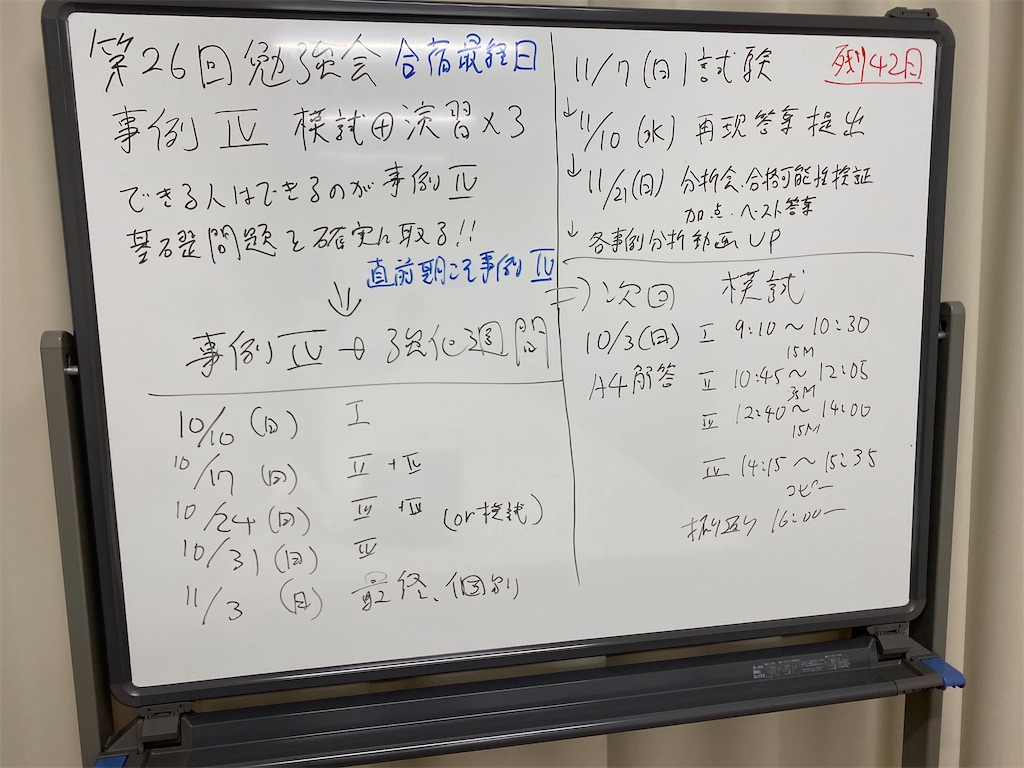 第26回勉強会 合宿最終日
事例Ⅳ 模試⊕演習×3
できる人はできるのが事例Ⅳ
基礎問題を確実に取る!!
直前期こそ事例Ⅳ
↓
事例Ⅳ→強化週間
10/10 (日) Ⅰ
10/17 (日)
10/24 (日) (or模試)
10/31 (日)
11/3 (日) 最終、個別
残り42日
11/7 (日) 試験
↓ 11/10 (水) 再現答案提出
↓ 11/21 (日) 分析会、合格可能性検証
加点・ベスト答案
↓ 各事例分析動画UP
⇒次回 模試
10/3(日) Ⅰ 9:10～10:30
15M
A4解答 Ⅱ 10:45～12:05
35M
Ⅲ 12:40～14:00
15M
Ⅳ 14:15～15:35
コピー
振り返り 16:00ー